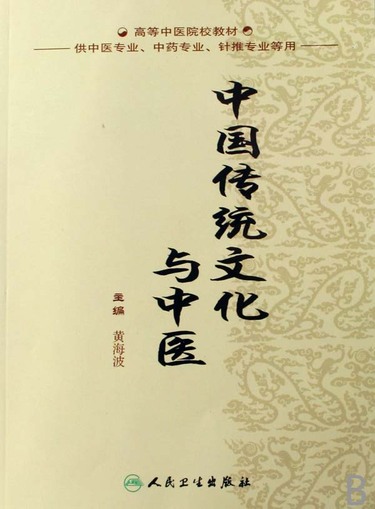 高等中医院校教材
供中医专业、中药专业、针推专业等用
中国传统文化
与中医
主编 黄海波
人民卫生出版社
B